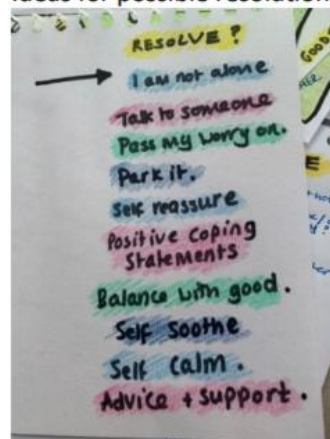 RESOLVE?
I am not alone
Talk to someone
Pass my worry on.
Park it.
Self reassure
Positive Coping
Statements
Balance with good.
Self Soothe
Self Calm.
Advice + support.
GOOD